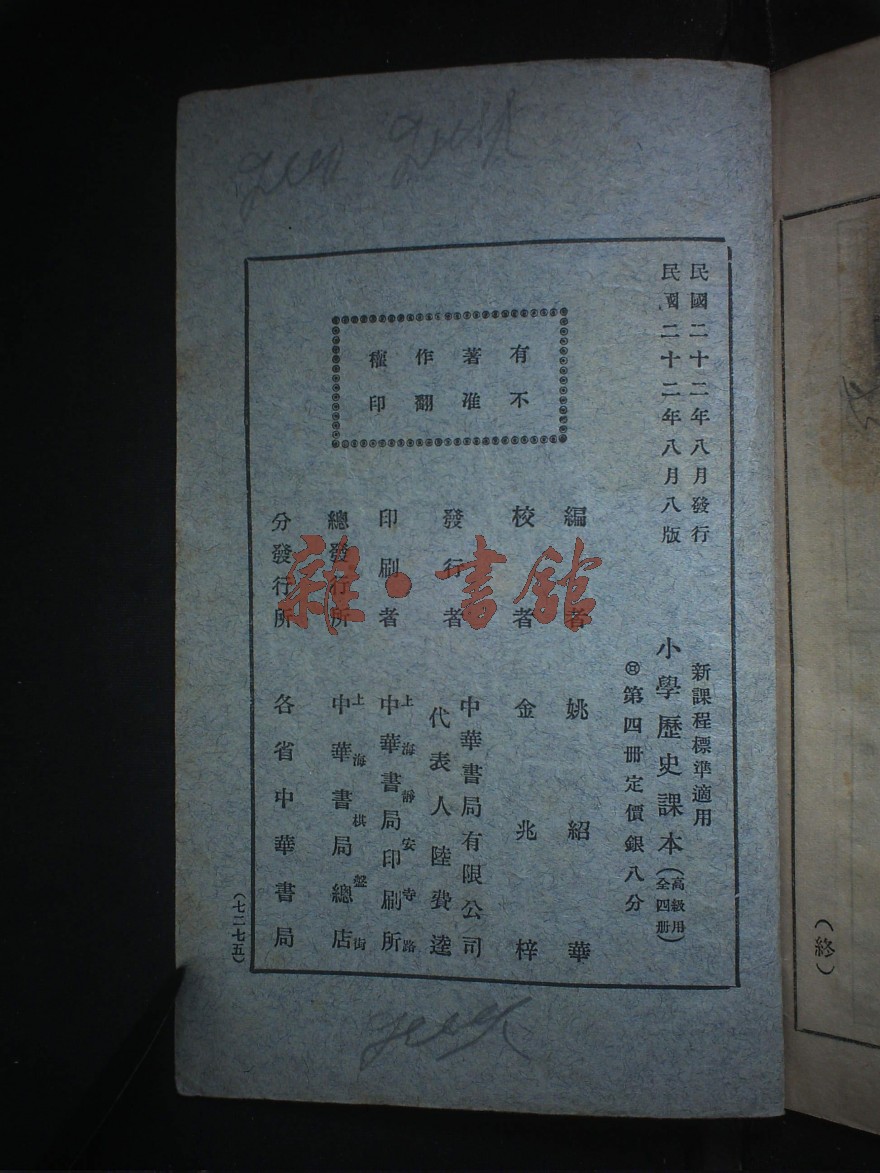 民國二十二年八月發行
民國二十二年八月八版
新課程標準適用
小學歷史課本(高級用全四册)
第四册定價銀八分
有著作權
不准翻印
編者 姚紹華
校者 金兆梓
發行者 中華書局有限公司
代表人陸費逵
印刷者 上海靜安寺路
中華書局印刷所
總發行所 上海棋盤街
中華書局總店
分發行所 各省中華書局
(七二七五)
(終)
雜·書館